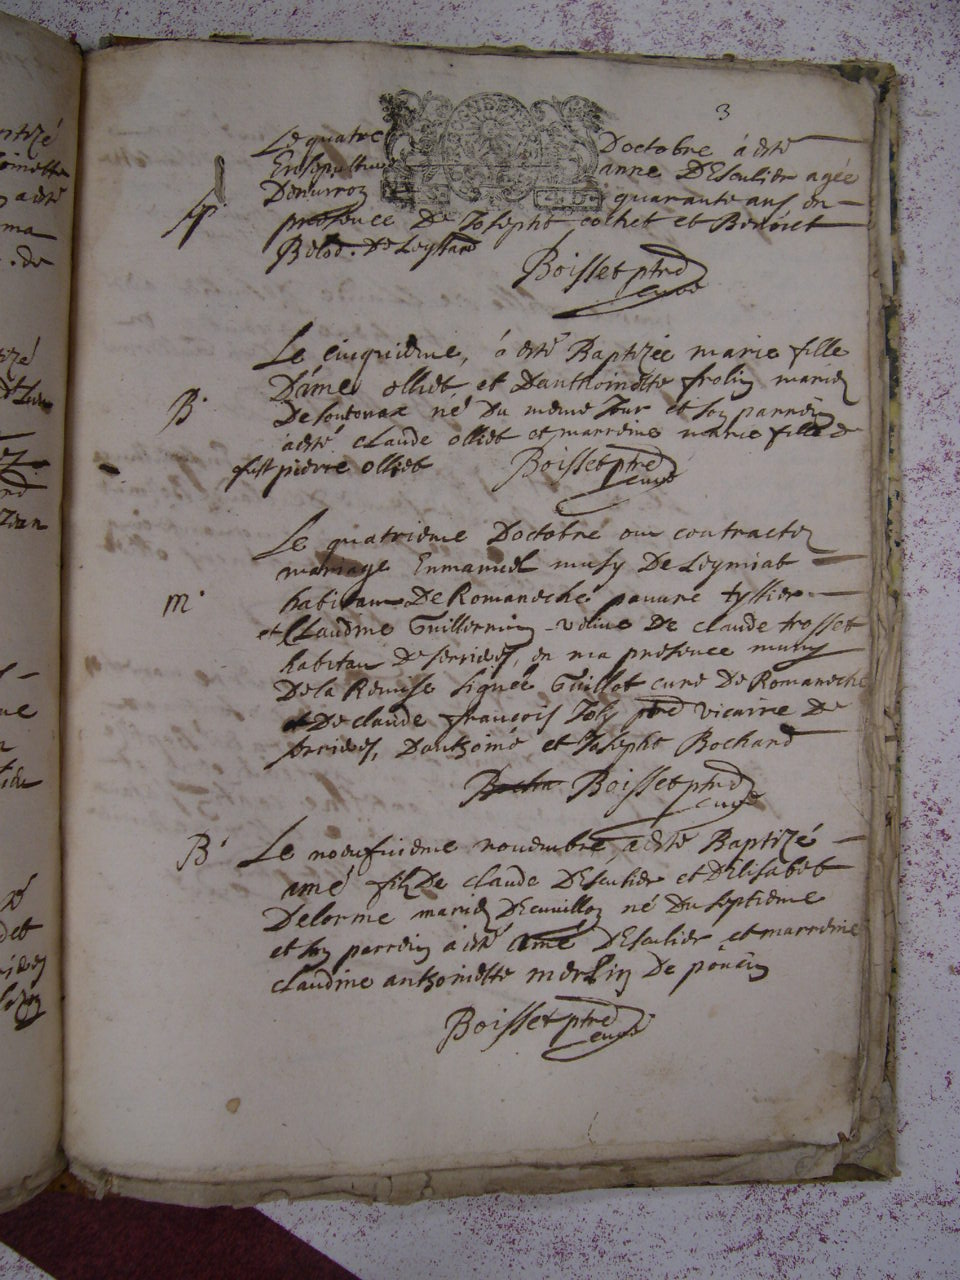 3
Le quatre Doctobre à esté
Ensepulture anne DEsculier agée
quarante ans en
presence De Josepht cochet et Benoict
Belod. De Leyssard
Boisset ptre
curé
Le cinquieme, a esté Baptizée marie fille
Damé olliet et Danthoinette frolin mariez
né Du meme Jour et son parrein
a esté claude olliet et marreine marie fille de
fust pierre olliet
Boisset ptre
curé
B.
Le quatrieme Doctobre ont contracté
mariage Enmanuel musy De Leymiat
m.
habitant De Romaneche pauvre tyssier
et Claudine Guillermin veufve De claude trosset
habitan De serrieres, en ma presence muny
De la Remise signée Guillot curé De Romaneche
et De claude francois Joly ptre vicaire De
serrieres, Danthoine et Josepht Bochard
Boisset ptre
curé
B.
Le noeufvieme novembre a esté Baptizé
amé filz De claude DEsculier et DElisabet
Delorme mariez né Du septieme
et son parrein a esté amé DEsculier et marreine
claudine anthoinette merlin De poncin
Boisset ptre
curé